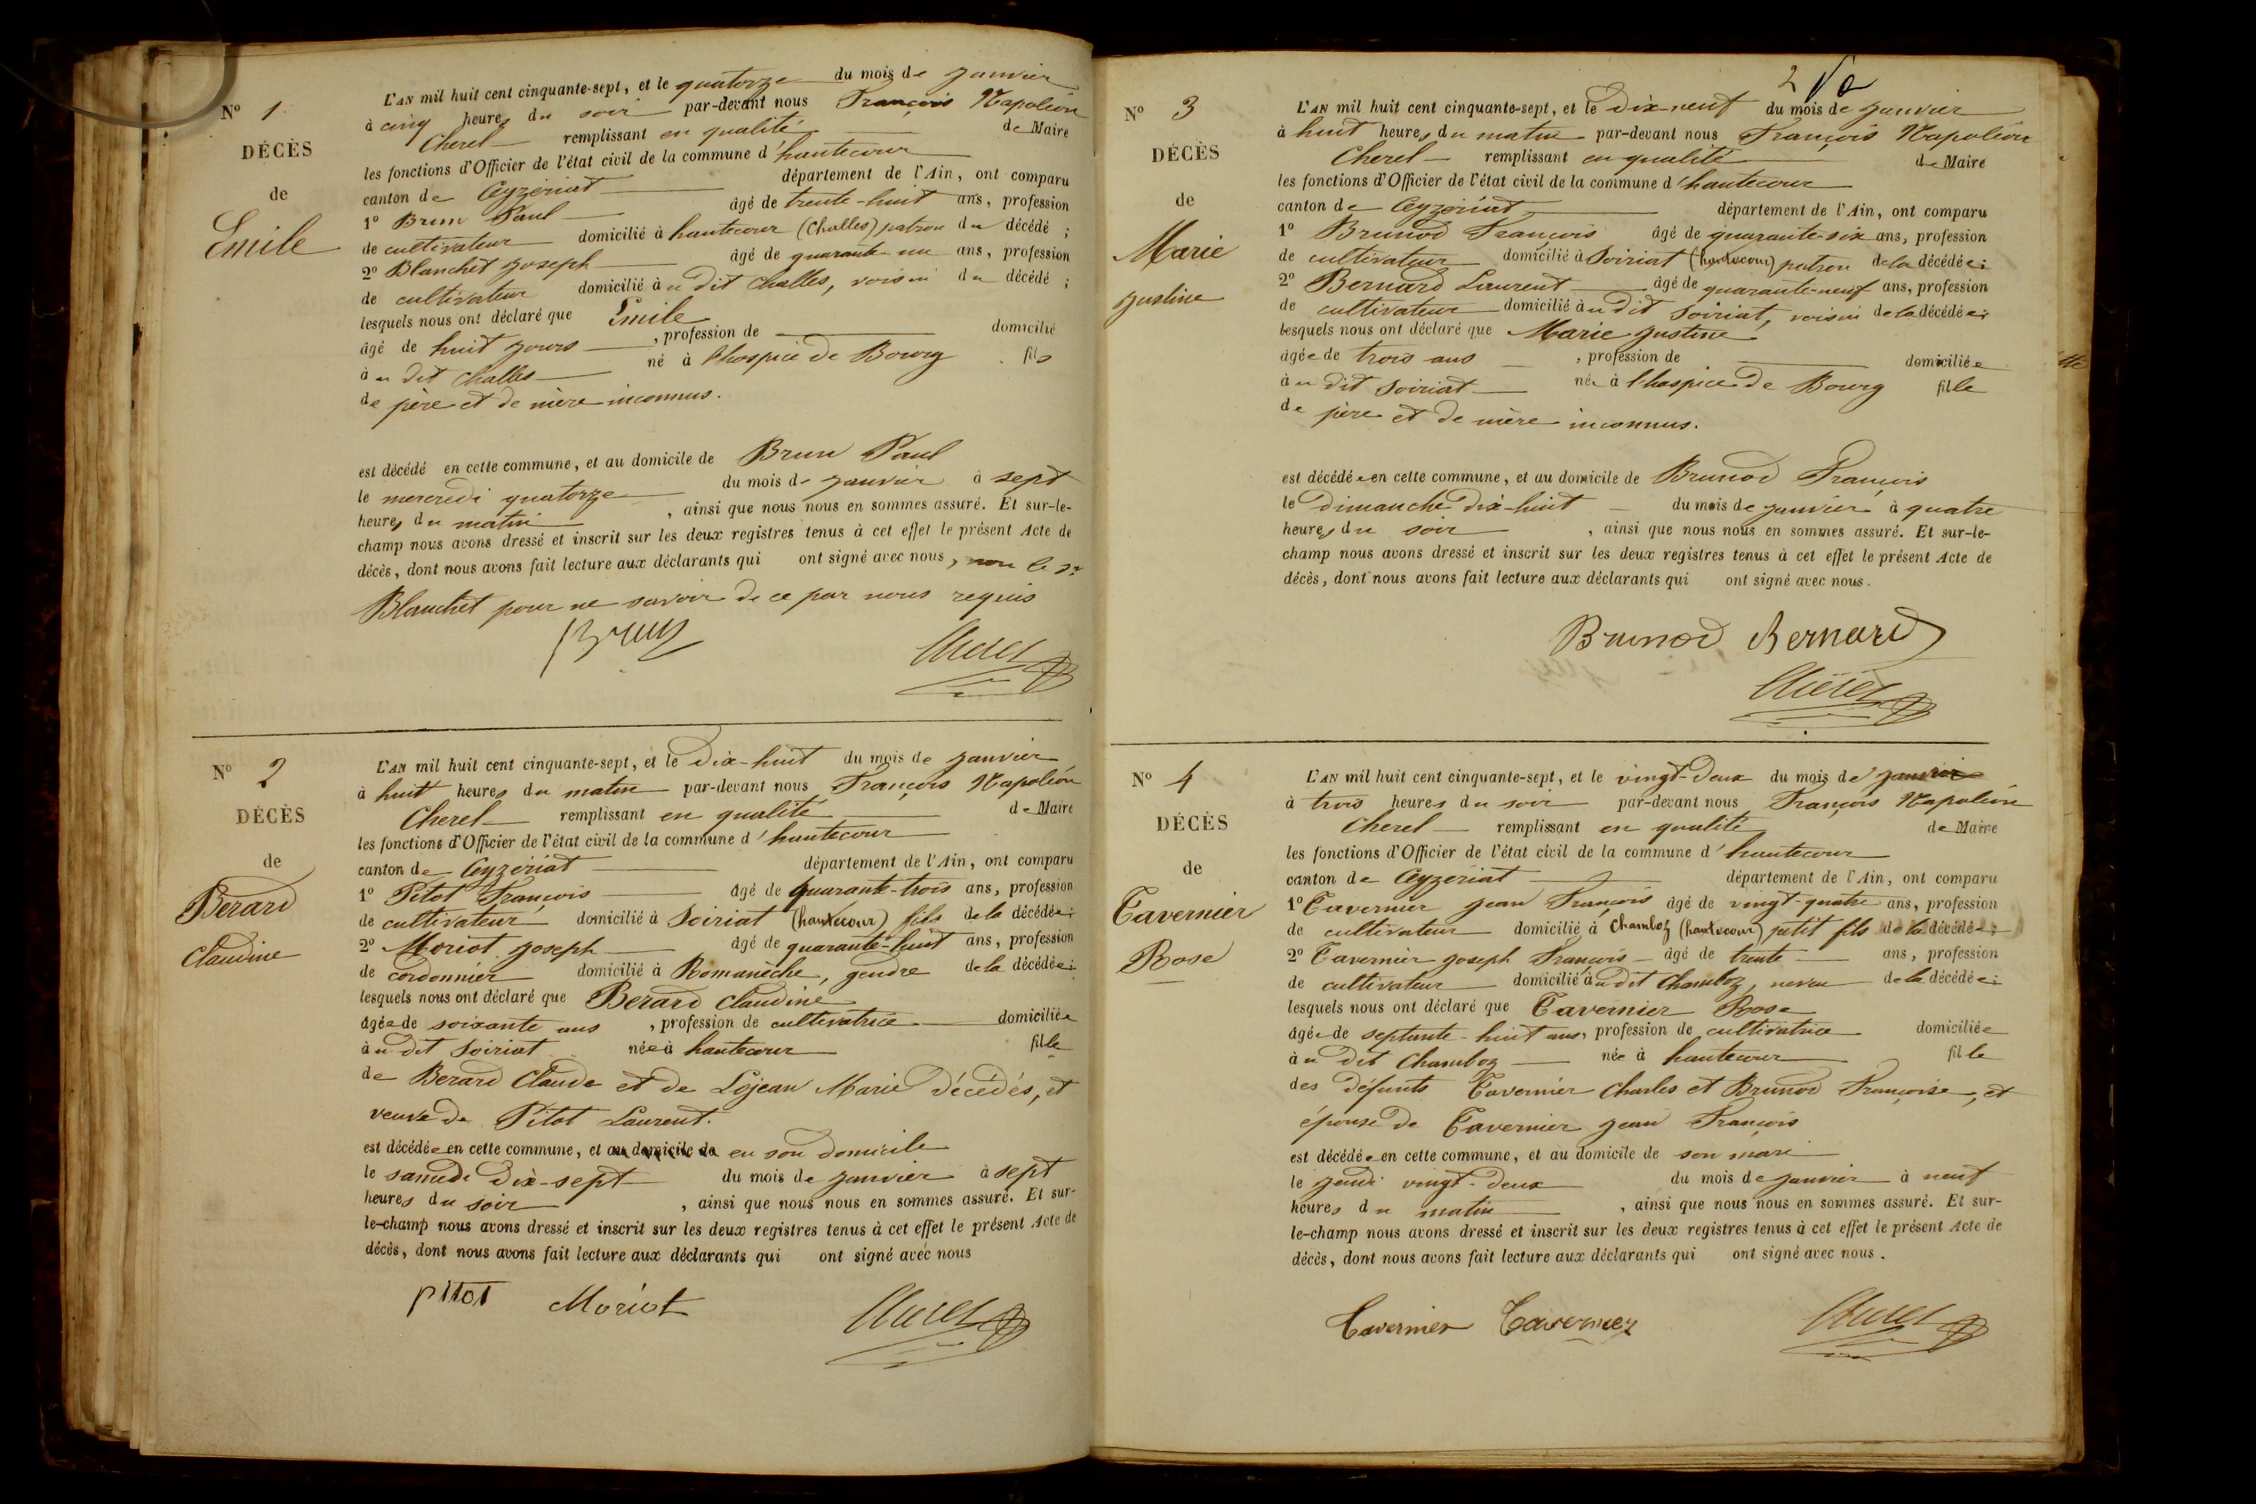 N° 1
DÉCÈS
de
Emile
L'AN mil huit cent cinquante-sept, et le quatorze du mois de janvier
à cinq heures du soir par-devant nous François Napoléon
Cherel remplissant en qualité de Maire
les fonctions d'Officier de l'état civil de la commune d'hautecour
canton de Ceyzeriat département de l'Ain, ont comparu
1° Brun Paul âgé de trente-huit ans, profession
de cultivateur domicilié à hautecour (Challes) patron du décédé ;
2° Blanchet joseph âgé de quarante un ans, profession
de cultivateur domicilié à u dit Challes, voisin du décédé ;
lesquels nous ont déclaré que Emile
âgé de huit jours , profession de domicilié
à u dit Challes né à l'hospice de Bourg fils
de père et de mère inconnus.
est décédé en cette commune, et au domicile de Brun Paul
le mercredi quatorze du mois de janvier à sept
heures du matin , ainsi que nous nous en sommes assuré. Et sur-le-
champ nous avons dressé et inscrit sur les deux registres tenus à cet effet le présent Acte de
décès, dont nous avons fait lecture aux déclarants qui ont signé avec nous, non le Sr
Blanchet pour ne savoir de ce par nous requis
Brun Cherel
N° 2
DÉCÈS
de
Berard
Claudine
L'AN mil huit cent cinquante-sept, et le Dix-huit du mois de janvier
à huit heures du matin par-devant nous François Napoléon
Cherel remplissant en qualité de Maire
les fonctions d'Officier de l'état civil de la commune d'hautecour
canton de Ceyzériat département de l'Ain, ont comparu
1° Pitot François âgé de quarante-trois ans, profession
de cultivateur domicilié à Soiriat (hautecour) fils de la décédée ;
2° Moriot joseph âgé de quarante-huit ans, profession
de cordonnier domicilié à Romanèche, gendre de la décédée ;
lesquels nous ont déclaré que Berard Claudine
âgée de soixante ans , profession de cultivatrice domiciliée
à u dit Soiriat née à hautecour fille
de Berard Claude et de Lojean Marie décédés, et
veuve de Pitot Laurent.
est décédée en cette commune, et au domicile de en son domicile
le samedi Dix-sept du mois de janvier à sept
heures du soir , ainsi que nous nous en sommes assuré. Et sur-
le-champ nous avons dressé et inscrit sur les deux registres tenus à cet effet le présent Acte de
décès, dont nous avons fait lecture aux déclarants qui ont signé avec nous
pitot Moriot Cherel
2
N° 3
DÉCÈS
de
Marie
justine
L'AN mil huit cent cinquante-sept, et le Dix-neuf du mois de janvier
à huit heures du matin par-devant nous François Napoléon
Cherel remplissant en qualité de Maire
les fonctions d'Officier de l'état civil de la commune d'hautecour
canton de Ceyzériat département de l'Ain, ont comparu
1° Brunod François âgé de quarante-six ans, profession
de cultivateur domicilié à Soiriat (hautecour) patron de la décédée ;
2° Bernard Laurent âgé de quarante-neuf ans, profession
de cultivateur domicilié à u dit Soiriat, voisin de la décédée ;
lesquels nous ont déclaré que Marie justine
âgée de trois ans , profession de domiciliée
à u dit Soiriat née à l'hospice de Bourg fille
de père et de mère inconnus.
est décédée en cette commune, et au domicile de Brunod François
le Dimanche dix-huit du mois de janvier à quatre
heures du soir , ainsi que nous nous en sommes assuré. Et sur-le-
champ nous avons dressé et inscrit sur les deux registres tenus à cet effet le présent Acte de
décès, dont nous avons fait lecture aux déclarants qui ont signé avec nous.
Brunod Bernard
Cherel
N° 4
DÉCÈS
de
Tavernier
Rose
L'AN mil huit cent cinquante-sept, et le vingt-deux du mois de janvier
à trois heures du soir par-devant nous François Napoléon
Cherel remplissant en qualité de Maire
les fonctions d'Officier de l'état civil de la commune d'hautecour
canton de Ceyzeriat département de l'Ain, ont comparu
1° Tavernier jean François âgé de vingt-quatre ans, profession
de cultivateur domicilié à Chamboz (hautecour) petit fils de la décédée ;
2° Tavernier joseph François âgé de trente ans, profession
de cultivateur domicilié à u dit Chamboz, neveu de la décédée ;
lesquels nous ont déclaré que Tavernier Rose
âgée de septante-huit ans, profession de cultivatrice domiciliée
à u dit Chamboz née à hautecour fille
des défunts Tavernier Charles et Brunod Françoise, et
épouse de Tavernier jean François
est décédée en cette commune, et au domicile de son mari
le jeudi vingt-deux du mois de janvier à neuf
heures du matin , ainsi que nous nous en sommes assuré. Et sur-
le-champ nous avons dressé et inscrit sur les deux registres tenus à cet effet le présent Acte de
décès, dont nous avons fait lecture aux déclarants qui ont signé avec nous.
Tavernier Tavernier Cherel